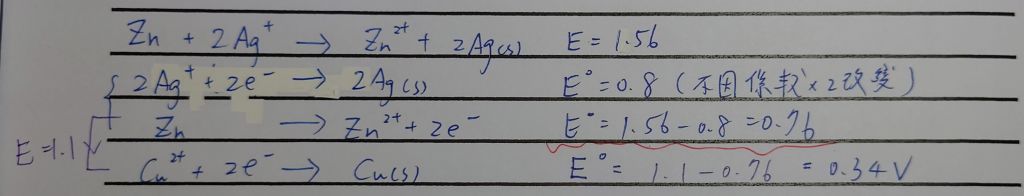 Zn + 2Ag⁺ → Zn²⁺ + 2Ag(s) E = 1.56
2Ag⁺ + 2e⁻ → 2Ag(s) E° = 0.8 (不因係數×2改變)
Zn → Zn²⁺ + 2e⁻ E° = 1.56 - 0.8 = 0.76
E = 1.1
Cu²⁺ + 2e⁻ → Cu(s) E° = 1.1 - 0.76 = 0.34V